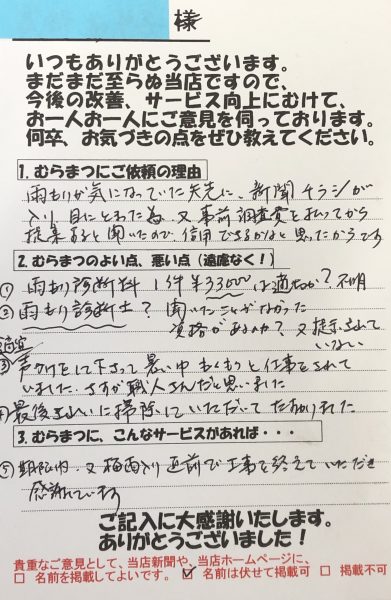 様
いつもありがとうございます。
まだまだ至らぬ当店ですので、
今後の改善、サービス向上にむけて、
お一人お一人にご意見を伺っております。
何卒、お気づきの点をぜひ教えてください。
1. むらまつにご依頼の理由
雨もりが気になっていた矢先に、新聞チラシが
入り、目にとまった為、又事前調査費を払ってから
提案すると聞いたので、信用できるかなと思ったからです
2. むらまつのよい点、悪い点（遠慮なく！）
① 雨もり診断料 1件￥33000は適切か？不明
② 雨もり診断士？ 聞いたことがなかった
資格があるのか？又提示されて
いない
③ 声かけをして下さって暑い中もくもくと仕事をされて
いました。さすが職人さんだと思いました
④ 最後きれいに掃除していただいてたすかりました
3. むらまつに、こんなサービスがあれば・・・
⑤ 期限内、又梅雨入り直前で工事を終えていただき
感謝しています
ご記入に大感謝いたします。
ありがとうございました！
貴重なご意見として、当店新聞や、当店ホームページに、
□ 名前を掲載してよいです。 ☑ 名前は伏せて掲載可 □ 掲載不可